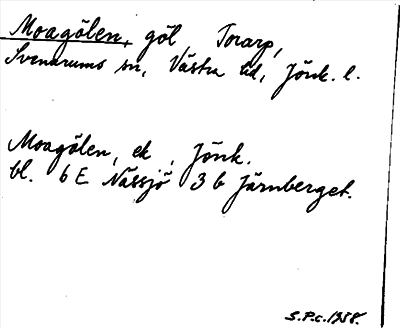 Moagölen, göl Torarp,
Svenarums sn, Västra hd, Jönk. l.
Moagölen, ek, Jönk.
bl. 6 E Nässjö 3 b Järnberget.
S.P.c. 1958.